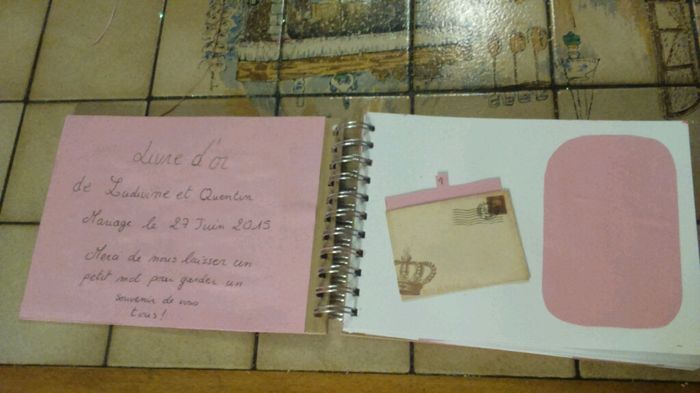 Livre d'or
de Ludivine et Quentin
Mariage le 27 Juin 2015
Merci de nous laisser un
petit mot pour garder un
souvenir de vous
tous !
1